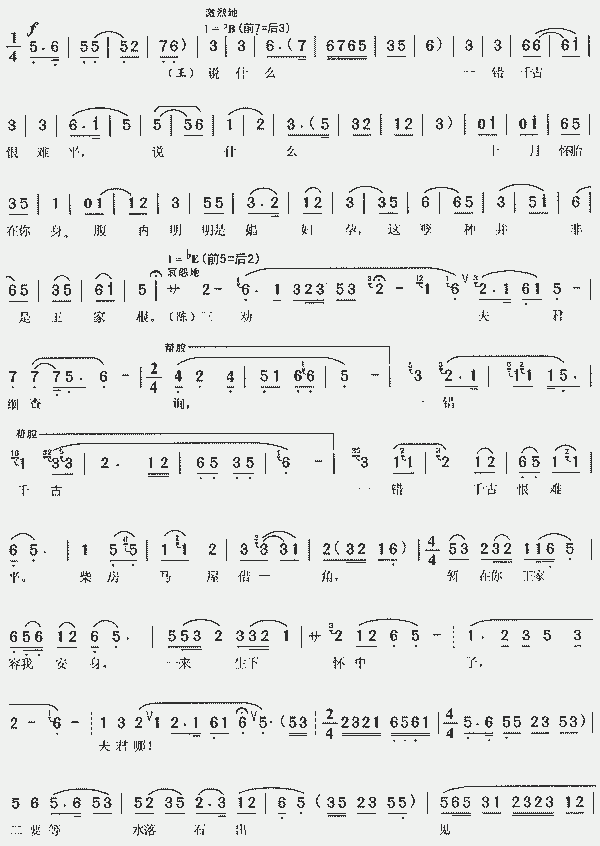 激烈地
f 1=♭B(前7=后3)
1/4 5·6 | 55 | 52 | 76) | 3 | 3 | 6·(7 | 6765 | 35 | 6) | 3 | 3 | 66 | 61 |
(王)说 什 么 一 错 千古
3 | 3 | 6·1 | 5 | 5 | 56 | 1 | 2 | 3·(5 | 32 | 12 | 3) | 01 | 01 | 65 |
恨 难 平, 说 什 么 十 月 怀胎
35 | 1 | 01 | 12 | 3 | 55 | 3·2 | 12 | 3 | 35 | 6 | 65 | 3 | 51 | 6 |
在你 身。 腹 内 明 明是 娼 妇 孕, 这 孽 种 并 非
1=♭E(前5=后2)
哀怨地
65 | 35 | 61 | 5 | サ 2- 6· 1 323 53 2 - 1 6 2·1 61 5 - |
是 王 家 根。(陈)三 劝 夫 君
帮腔
7 7 75· 6 - | 2/4 4 2 4 | 51 66 | 5 - | 3 2·1 | 11 15· |
细 查 询, 一 错
帮腔
1 33 | 2· 12 | 65 35 | 6 - | 3 11 | 2 12 | 65 11 |
千 古 一 错 千古 恨 难
6 5· | 1 55 | 11 2 | 3 3 31 | 2(32 16) | 4/4 53 232 116 5 |
平。 柴 房 马 屋 借 一 角, 暂 在你 王家
656 12 6 5· | 553 2 332 1 | サ 2 12 6 5 - | 1· 2 3 5 3
容我 安 身。 一来 生下 怀 中 子,
2 - 6 - | 1 3 2 1 2·1 61 6 5·(53 | 2/4 2321 6561 | 4/4 5·6 55 23 53) |
夫 君 哪!
5 6 5·6 53 | 52 35 2·3 12 | 6 5 (35 23 55) | 565 31 2323 12 |
二 要 等 水落 石 出 见